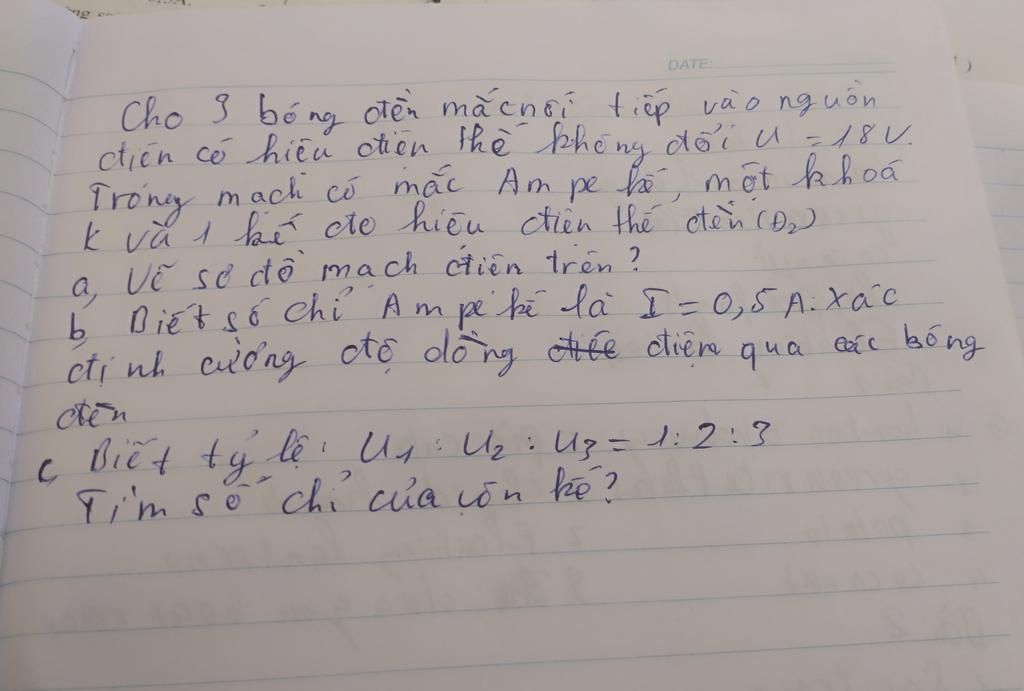 DATE:
Cho 3 bóng đèn mắc nối tiếp vào nguồn
điện có hiệu điện thế không đổi U = 18V.
Trong mạch có mắc Am pe kế, một khoá
K và 1 kế đo hiệu điện thế đèn (Đ2)
a, Vẽ sơ đồ mạch điện trên?
b, Biết số chỉ Am pe kế là I = 0,5A. Xác
định cường độ dòng điện qua các bóng
đèn
c, Biết tỷ lệ: U1 : U2 : U3 = 1 : 2 : 3
Tìm số chỉ của vôn kế?